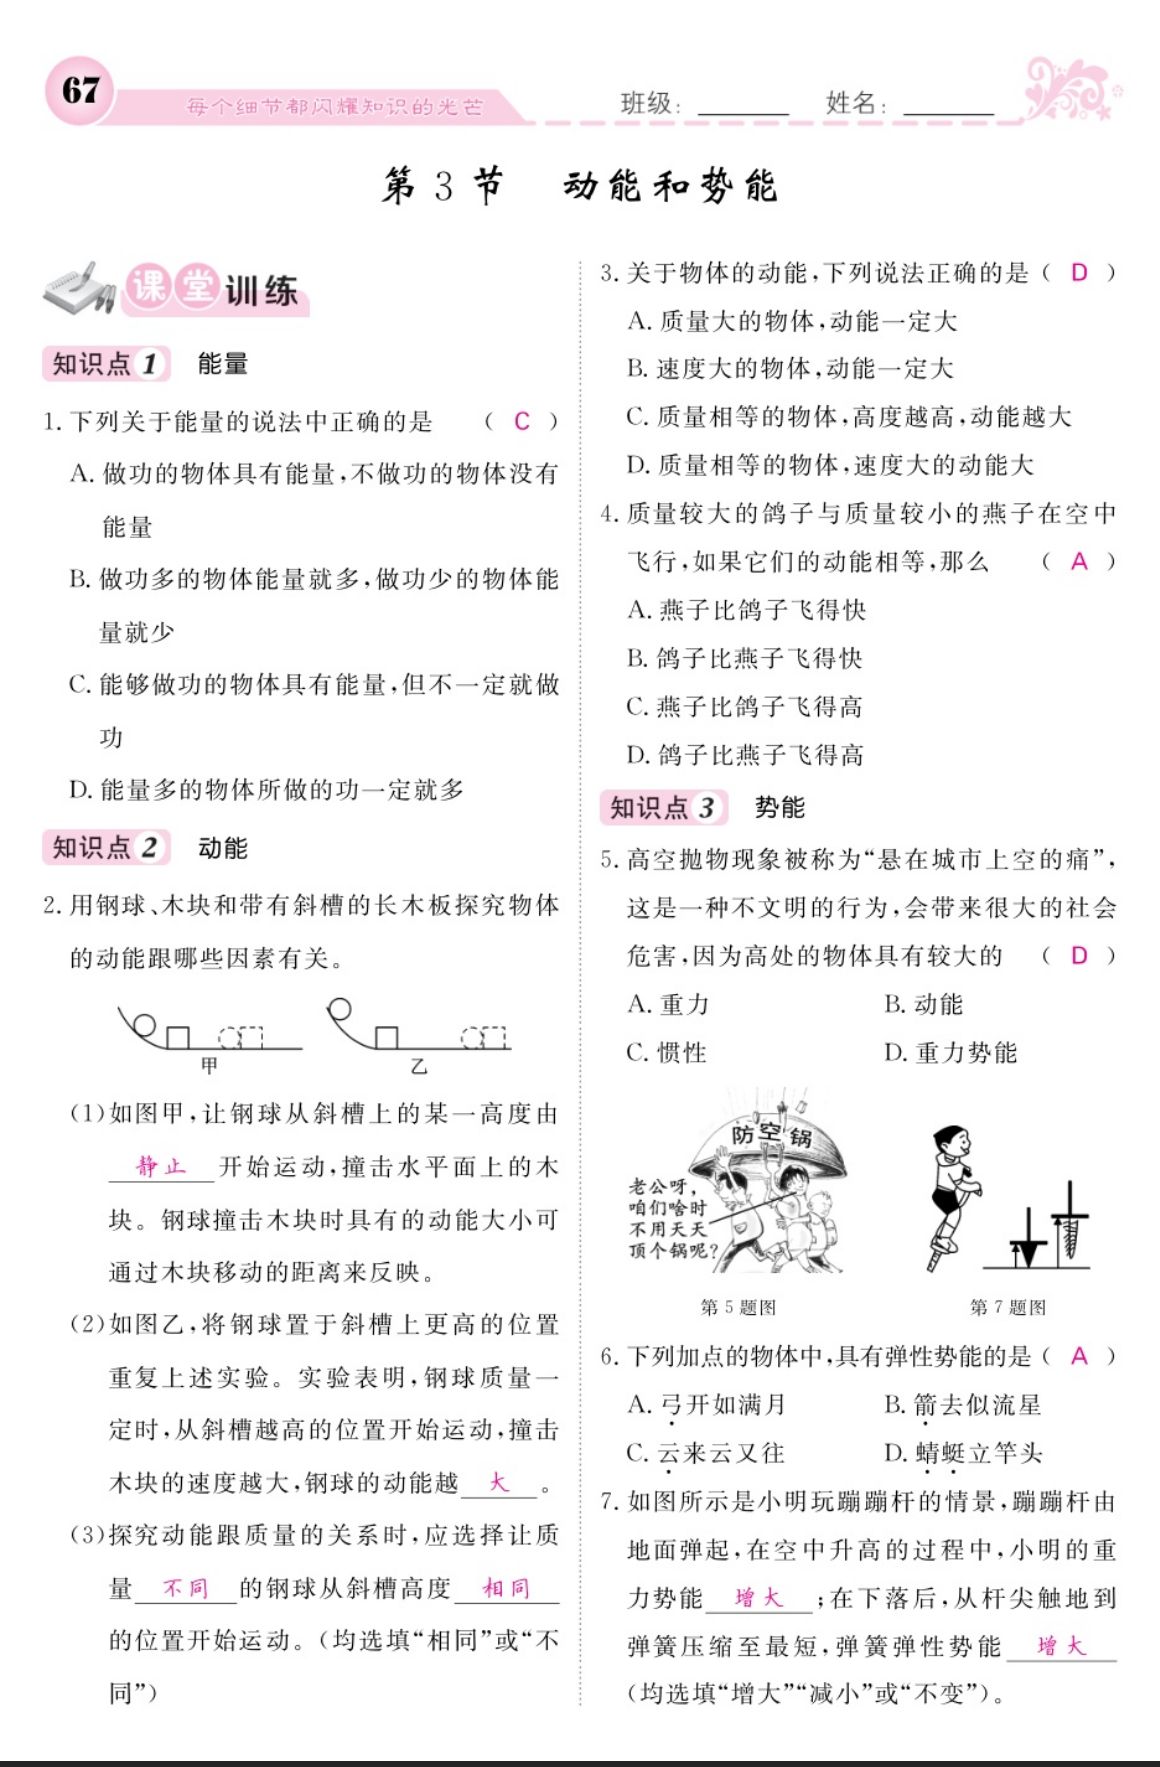 67
每个细节都闪耀知识的光芒
班级：
姓名：
第 3 节 动能和势能
课堂训练
知识点 1 能量
1. 下列关于能量的说法中正确的是 （ C ）
A. 做功的物体具有能量,不做功的物体没有
能量
B. 做功多的物体能量就多,做功少的物体能
量就少
C. 能够做功的物体具有能量,但不一定就做
功
D. 能量多的物体所做的功一定就多
知识点 2 动能
2. 用钢球、木块和带有斜槽的长木板探究物体
的动能跟哪些因素有关。
甲
乙
(1)如图甲,让钢球从斜槽上的某一高度由
静止 开始运动,撞击水平面上的木
块。钢球撞击木块时具有的动能大小可
通过木块移动的距离来反映。
(2)如图乙,将钢球置于斜槽上更高的位置
重复上述实验。实验表明,钢球质量一
定时,从斜槽越高的位置开始运动,撞击
木块的速度越大,钢球的动能越 大 。
(3)探究动能跟质量的关系时,应选择让质
量 不同 的钢球从斜槽高度 相同
的位置开始运动。(均选填“相同”或“不
同”)
3. 关于物体的动能,下列说法正确的是（ D ）
A. 质量大的物体,动能一定大
B. 速度大的物体,动能一定大
C. 质量相等的物体,高度越高,动能越大
D. 质量相等的物体,速度大的动能大
4. 质量较大的鸽子与质量较小的燕子在空中
飞行,如果它们的动能相等,那么 （ A ）
A. 燕子比鸽子飞得快
B. 鸽子比燕子飞得快
C. 燕子比鸽子飞得高
D. 鸽子比燕子飞得高
知识点 3 势能
5. 高空抛物现象被称为“悬在城市上空的痛”,
这是一种不文明的行为,会带来很大的社会
危害,因为高处的物体具有较大的 （ D ）
A. 重力 B. 动能
C. 惯性 D. 重力势能
防空锅
老公呀,
咱们啥时
不用天天
顶个锅呢?
第 5 题图
第 7 题图
6. 下列加点的物体中,具有弹性势能的是（ A ）
A. 弓开如满月 B. 箭去似流星
C. 云来云又往 D. 蜻蜓立竿头
7. 如图所示是小明玩蹦蹦杆的情景,蹦蹦杆由
地面弹起,在空中升高的过程中,小明的重
力势能 增大 ;在下落后,从杆尖触地到
弹簧压缩至最短,弹簧弹性势能 增大
(均选填“增大”“减小”或“不变”)。